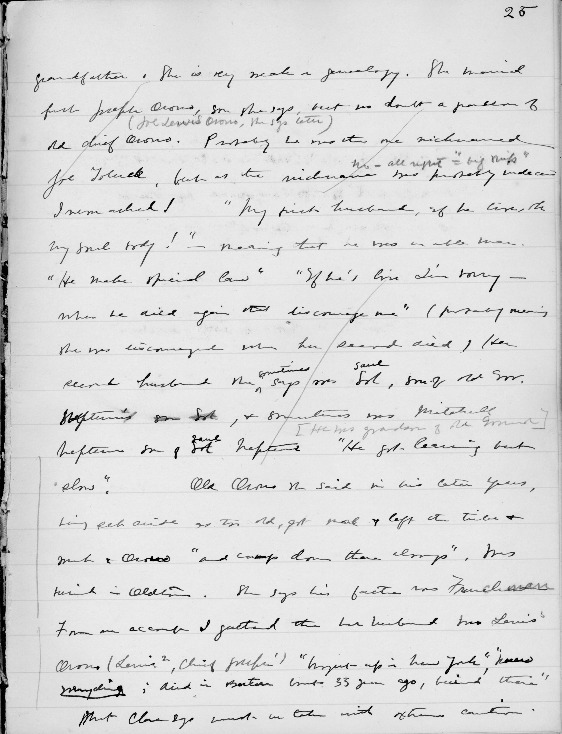 25
grandfather. She is very weak on genealogy. She married
first Joseph Orono, son she says, but no doubt a grandson of
(Joe Lewis Orono, she says later)
old chief Orono. Probably he was the one nicknamed
no - all right = "big
Joe, but as the nickname was probably
I remarked! "My first husband, if he live, oh
my soul body!" - meaning that he was an able man.
"He make special law" "If he's live I'm sorry -
when he died again that discourage me" (probably meaning
she was discouraged when her second died) Her
second husband she sometimes says was Sol, son of old Gov.
Neptune's son Sol, & sometimes was Mitchell
[He was grandson of old Governor]
Neptune son of Sol Neptune "He got learning but
slow". Old Orono she said in his later years,
being set aside as too old, got mad & left the tribe &
went to Orono "and camp down there always". Was
buried in Oldtown. She says his father was Frenchman
From an account I gathered that her husband was Lewis
Orono (Lewis², Chief Joseph¹) "brought up in New York",
everything; died in Boston about 35 years ago, buried there"
What Clara says must be taken with extreme caution.